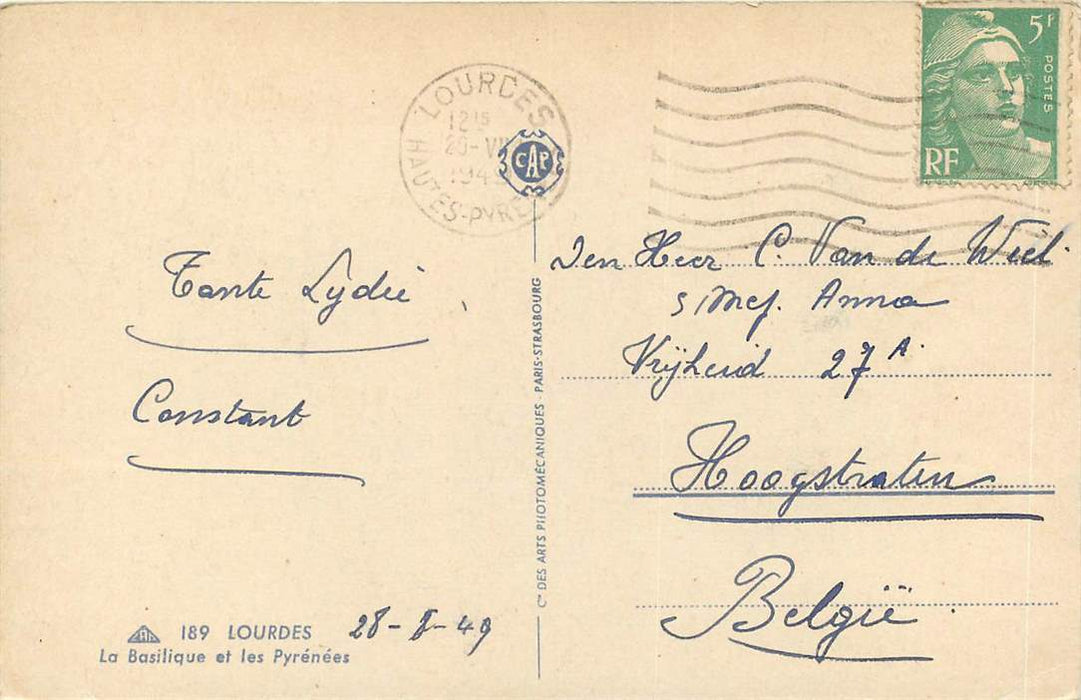 LOURDES
12 15
1949
HAUTES-PYRE
CAP
5F
POSTES
RF
Tante Lydie
Constant
Den Heer C. Van de Wiel
Mej. Anna
Vrijheid 27 A
Hoogstraten
België
Cie DES ARTS PHOTOMÉCANIQUES - PARIS-STRASBOURG
189 LOURDES 28-8-49
La Basilique et les Pyrénées